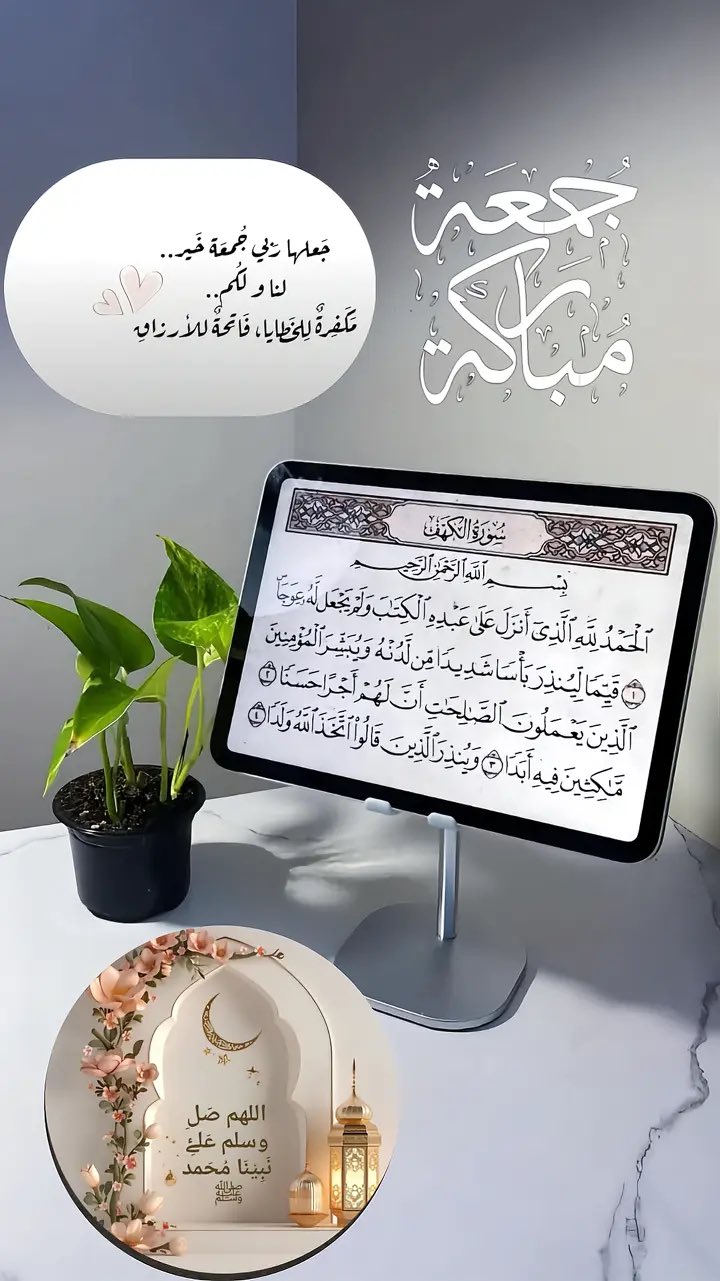 جُمعَة
مُباركة
جَعلها رَبّي جُمعَة خَير..
لنا و لكُم..
مَكَفِرةٌ لِلخَطايا، فَاتحةٌ للأرزاقِ
سُورَةُ الكَهْفِ
بِسْمِ اللَّهِ الرَّحْمَٰنِ الرَّحِيمِ
الْحَمْدُ لِلَّهِ الَّذِي أَنزَلَ عَلَىٰ عَبْدِهِ الْكِتَابَ وَلَمْ يَجْعَل لَّهُ عِوَجًا
١ قَيِّمًا لِّيُنذِرَ بَأْسًا شَدِيدًا مِّن لَّدُنْهُ وَيُبَشِّرَ الْمُؤْمِنِينَ
الَّذِينَ يَعْمَلُونَ الصَّالِحَاتِ أَنَّ لَهُمْ أَجْرًا حَسَنًا ٢
مَّاكِثِينَ فِيهِ أَبَدًا ٣ وَيُنذِرَ الَّذِينَ قَالُوا اتَّخَذَ اللَّهُ وَلَدًا ٤
اللهم صَلِ
وسلم عَلىٰ
نَبِينَا مُحَمد
ﷺ